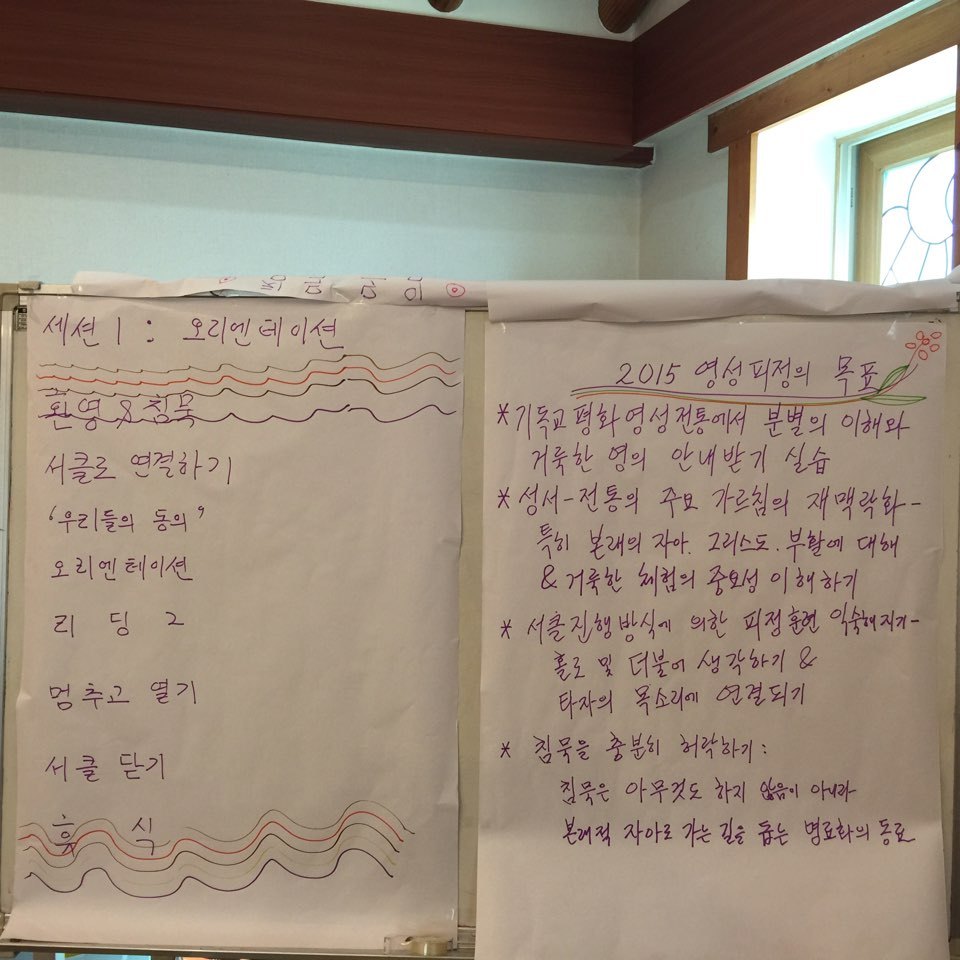 세션 1 : 오리엔테이션
환영 & 침묵
서클로 연결하기
'우리들의 동의'
오리엔테이션
리딩 2
멈추고 열기
서클 닫기
휴식
2015 영성피정의 목표
* 기독교평화영성전통에서 분별의 이해와
거룩한 영의 안내받기 실습
* 성서-전통의 주요 가르침의 재맥락화-
특히 본래의 자아. 그리스도. 부활에 대해
& 거룩한 체험의 중요성 이해하기
* 서클진행방식에 의한 피정훈련 익숙해지기-
홀로 및 더불어 생각하기 &
타자의 목소리에 연결되기
* 침묵을 충분히 허락하기:
침묵은 아무것도 하지 않음이 아니라
본래적 자아로 가는 길을 돕는 명료화의 동료